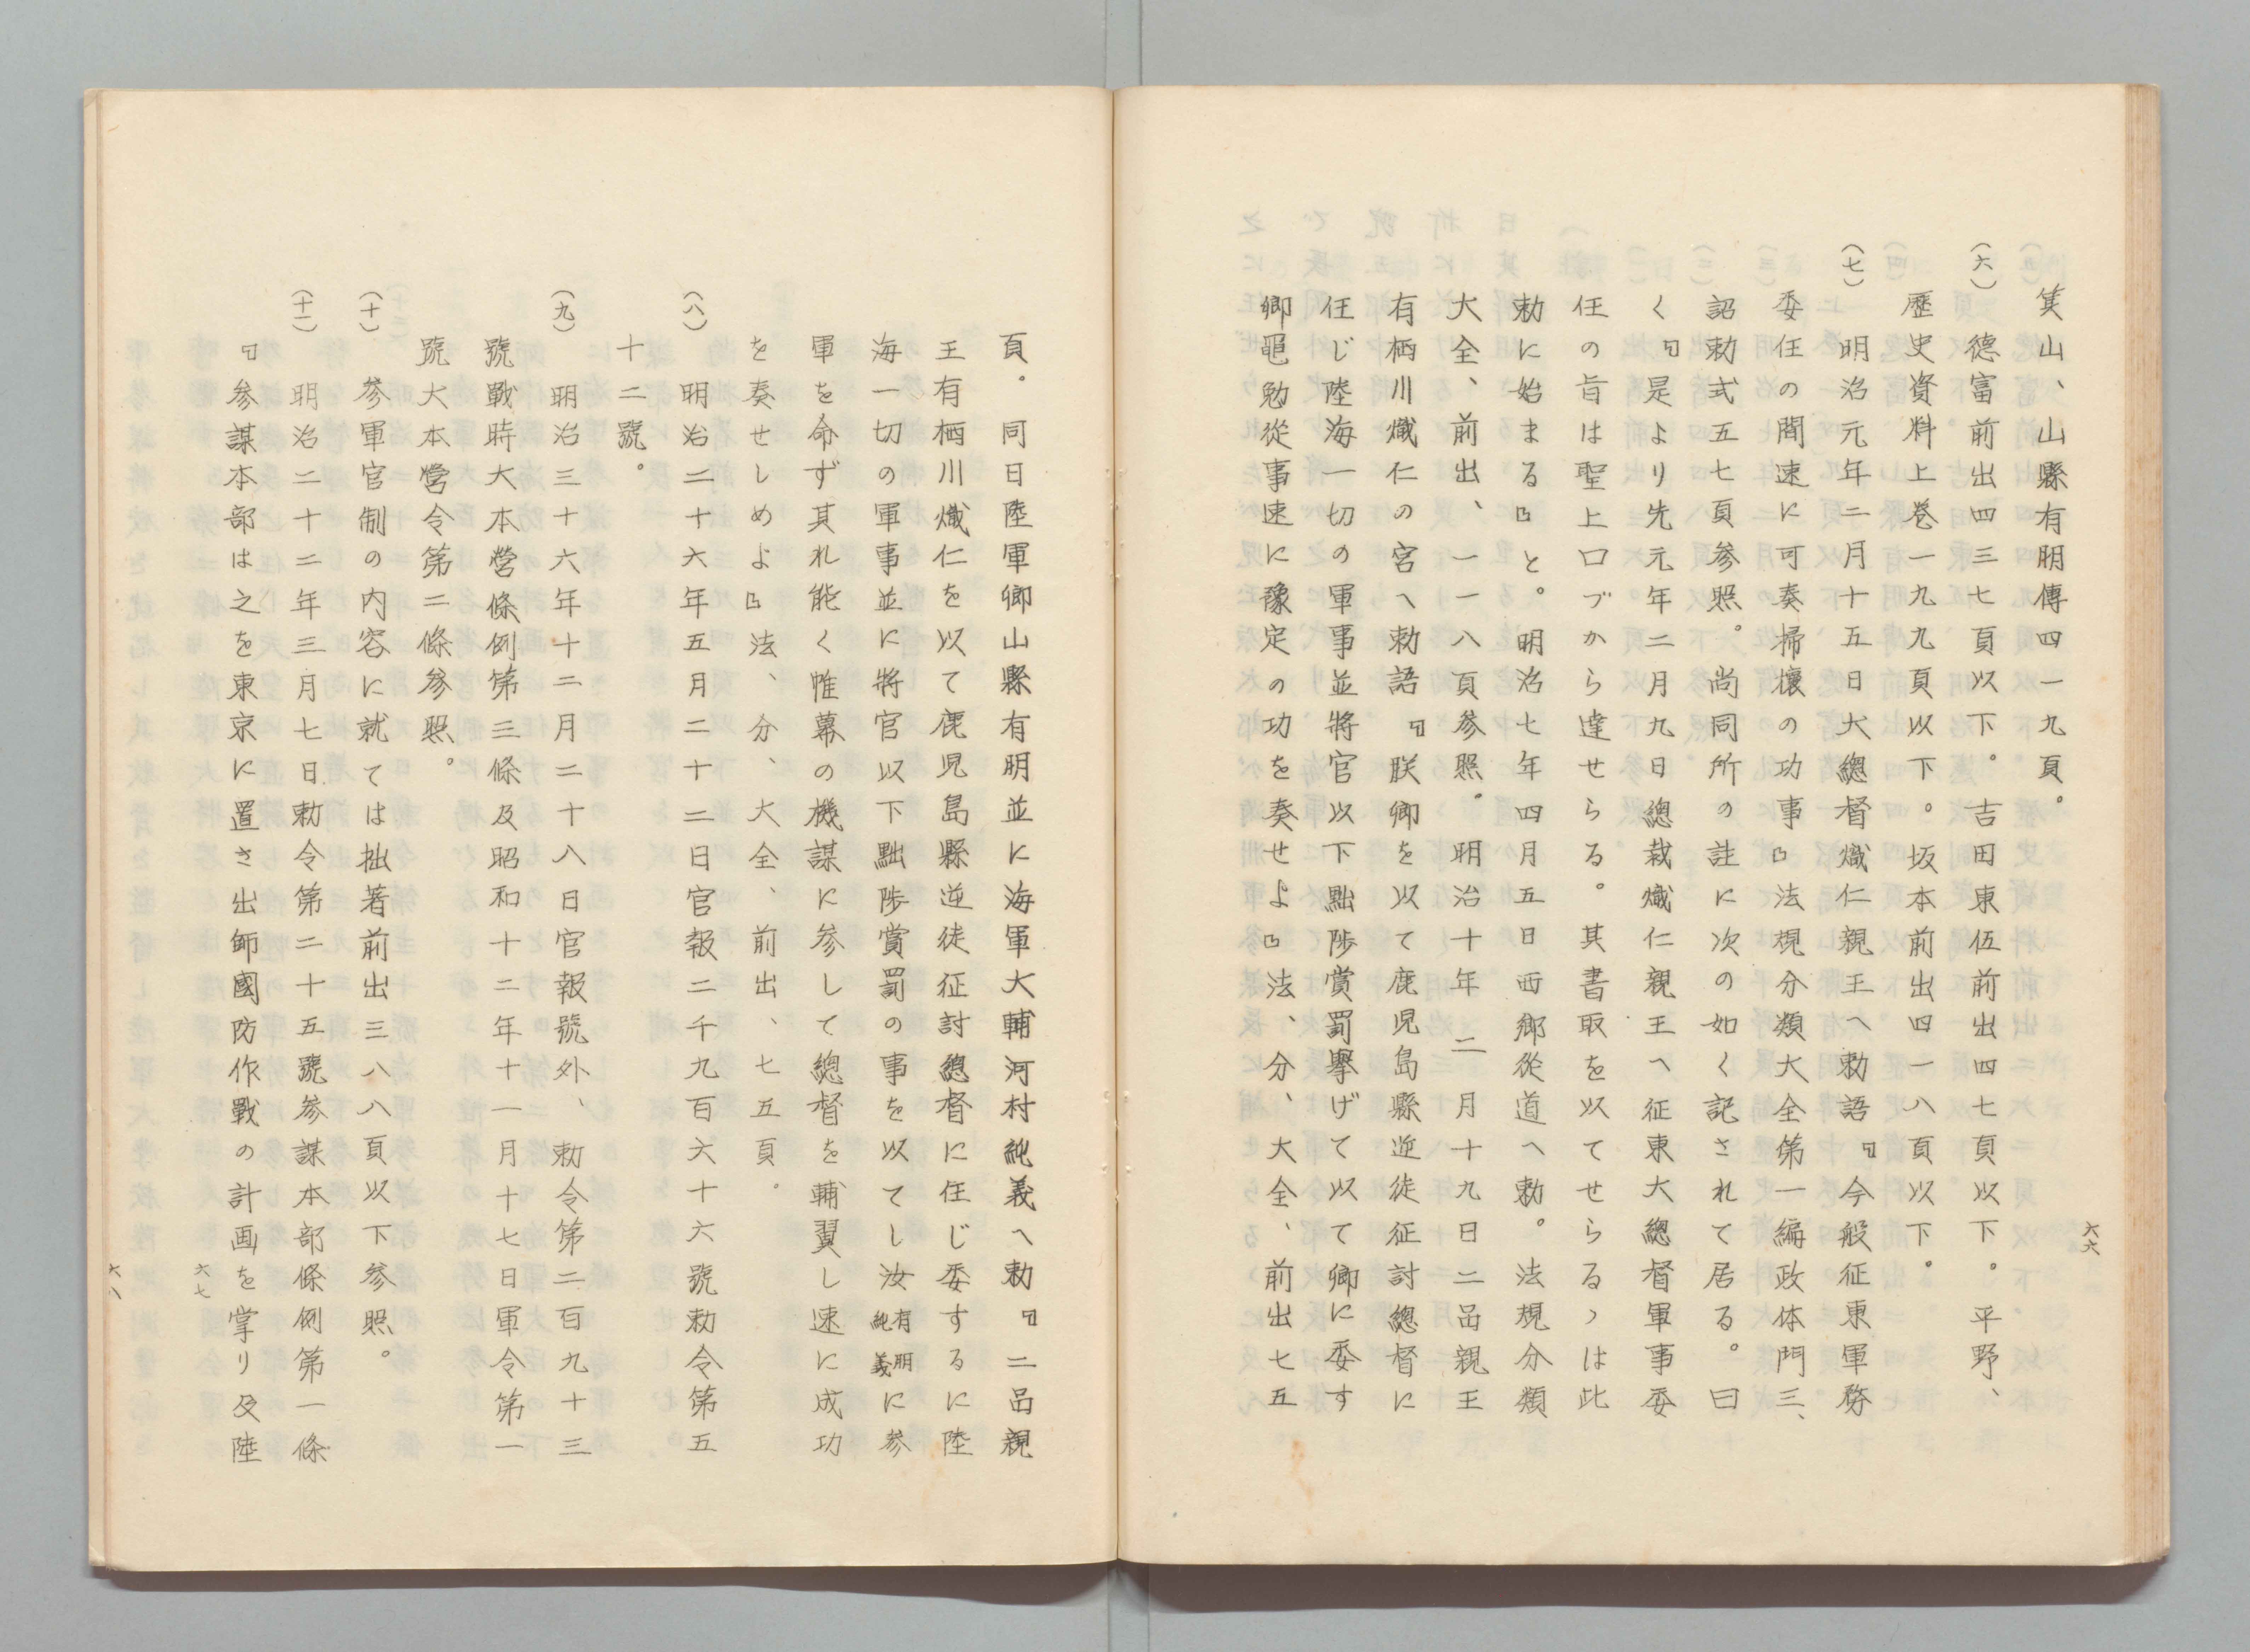 箕山、山縣有朋傳四一九頁。
(六) 德富前出四三七頁以下。吉田東伍前出四七頁以下。平野、
歷史資料上巻一九九頁以下。坂本前出四一八頁以下。
(七) 明治元年二月十五日大總督熾仁親王へ勅語『今般征東軍務
委任の間速に可奏掃攘の功事』法規分類大全第一編政体門三、
詔勅式五七頁参照。尚同所の註に次の如く記されて居る。曰
く『是より先元年二月九日總裁熾仁親王へ征東大總督軍事委
任の旨は聖上口づから達せらる。其書取を以てせらるゝは此
勅に始まる』と。明治七年四月五日西郷從道へ勅。法規分類
大全、前出、一一八頁参照。明治十年二月十九日二品親王
有栖川熾仁の宮へ勅語『朕卿を以て鹿児島縣逆徒征討總督に
任じ陸海一切の軍事並將官以下黜陟賞罰擧げて以て卿に委す
卿黽勉從事速に豫定の功を奏せよ』法、分、大全、前出七五
六六
頁。同日陸軍卿山縣有朋並に海軍大輔河村純義へ勅『二品親
王有栖川熾仁を以て鹿児島縣逆徒征討總督に任じ委するに陸
海一切の軍事並に將官以下黜陟賞罰の事を以てし汝有朋純義に参
軍を命ず其れ能く惟幕の機謀に参して總督を輔翼し速に成功
を奏せしめよ』法、分、大全、前出、七五頁。
(八) 明治二十六年五月二十二日官報二千九百六十六號勅令第五
十二號。
(九) 明治三十六年十二月二十八日官報號外、勅令第二百九十三
號戰時大本営條例第三條及昭和十二年十一月十七日軍令第一
號大本営令第二條参照。
(十) 参軍官制の内容に就ては拙著前出三八八頁以下参照。
(十一) 明治二十二年三月七日勅令第二十五號参謀本部條例第一條
『参謀本部は之を東京に置き出師國防作戰の計画を掌り及陸
六七
六八